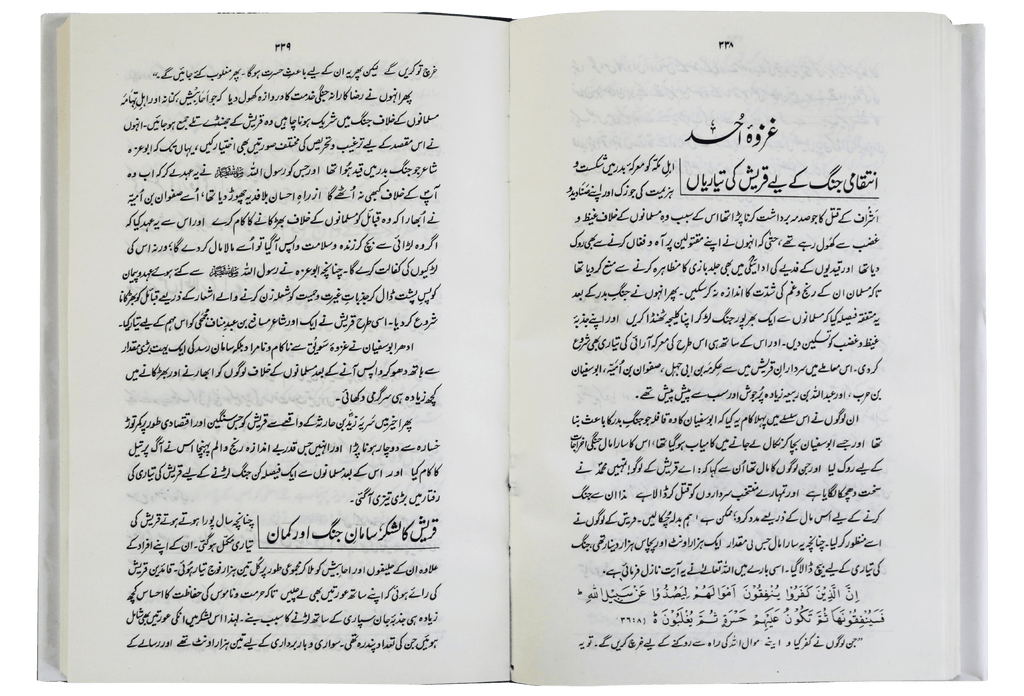 ۳۳۸
غزوۂ اُحد
انتقامی جنگ کے لیے قریش کی تیاریاں
اہلِ مکہ کو معرکۂ بدر میں شکست و
ہزیمت کی جو زک اور اپنے صنادید و
اشراف کے قتل کا جو صدمہ برداشت کرنا پڑا تھا اس کے سبب وہ مسلمانوں کے خلاف غیظ و
غضب سے کھول رہے تھے، حتیٰ کہ انہوں نے اپنے مقتولین پر آہ و فغاں کرنے سے بھی روک
دیا تھا اور قیدیوں کے فدیے کی ادائیگی میں بھی جلد بازی کا مظاہرہ کرنے سے منع کر دیا تھا
تاکہ مسلمان ان کے رنج و غم کی شدت کا اندازہ نہ کر سکیں۔ پھر انہوں نے جنگِ بدر کے بعد
یہ متفقہ فیصلہ کیا کہ مسلمانوں سے ایک بھرپور جنگ لڑ کر اپنا کلیجہ ٹھنڈا کریں اور اپنے جذبۂ
غیظ و غضب کو تسکین دیں۔ اور اس کے ساتھ ہی اس طرح کی معرکہ آرائی کی تیاری بھی شروع
کر دی۔ اس معاملے میں سردارانِ قریش میں سے عکرمہ بن ابی جہل، صفوان بن اُمیّہ، ابو سفیان
بن حرب، اور عبد اللہ بن ربیعہ زیادہ پُرجوش اور سب سے پیش پیش تھے۔
ان لوگوں نے اس سلسلے میں پہلا کام یہ کیا کہ ابو سفیان کا وہ قافلہ جو جنگِ بدر کا باعث بنا
تھا اور جسے ابو سفیان بچا کر نکال لے جانے میں کامیاب ہو گیا تھا، اس کا سارا مال جنگی اخراجات
کے لیے روک لیا اور جن لوگوں کا مال تھا اُن سے کہا کہ: اے قریش کے لوگو! تمہیں محمد نے
سخت دھچکا لگایا ہے اور تمہارے منتخب سرداروں کو قتل کر ڈالا ہے لہٰذا ان سے جنگ
کرنے کے لیے اس مال کے ذریعے مدد کرو؛ ممکن ہے کہ ہم بدلہ چکا لیں۔ قریش کے لوگوں نے
اسے منظور کر لیا۔ چنانچہ یہ سارا مال جس کی مقدار ایک ہزار اونٹ اور پچاس ہزار دینار تھی، جنگ
کی تیاری کے لیے بیچ ڈالا گیا۔ اسی بارے میں اللہ تعالےٰ نے یہ آیت نازل فرمائی ہے۔
اِنَّ الَّذِیْنَ کَفَرُوْا یُنْفِقُوْنَ اَمْوَالَهُمْ لِیَصُدُّوْا عَنْ سَبِیْلِ اللّٰهِ ط
فَسَیُنْفِقُوْنَهَا ثُمَّ تَكُوْنُ عَلَیْهِمْ حَسْرَةً ثُمَّ یُغْلَبُوْنَ ۵ (۳۶:۸)
”جن لوگوں نے کفر کیا وہ اپنے اموال اللہ کی راہ سے روکنے کے لیے خرچ کریں گے۔ تو یہ
۳۳۹
خرچ تو کریں گے لیکن پھر یہ ان کے لیے باعثِ حسرت ہوگا۔ پھر مغلوب کئے جائیں گے۔“
پھر انہوں نے رضاکارانہ جنگی خدمت کا دروازہ کھول دیا کہ جو اَحابیش، کنانہ اور اہلِ تہامہ
مسلمانوں کے خلاف جنگ میں شریک ہونا چاہیں وہ قریش کے جھنڈے تلے جمع ہو جائیں۔ انہوں
نے اس مقصد کے لیے ترغیب و تحریض کی مختلف صورتیں بھی اختیار کیں، یہاں تک کہ ابو عزہ
شاعر جو جنگِ بدر میں قید ہوا تھا اور جس کو رسول اللہ ﷺ نے یہ عہد لے کر کہ اب وہ
آپؐ کے خلاف کبھی نہ اُٹھے گا ازراہِ احسان بلا فدیہ چھوڑ دیا تھا، اُسے صفوان بن اُمیّہ
نے ابھارا کہ وہ قبائل کو مسلمانوں کے خلاف بھڑکانے کا کام کرے اور اس سے یہ عہد کیا کہ
اگر وہ لڑائی سے بچ کر زندہ و سلامت واپس آ گیا تو اُسے مالا مال کر دے گا؛ ورنہ اس کی
لڑکیوں کی کفالت کرے گا۔ چنانچہ ابو عزہ نے رسول اللہ ﷺ سے کئے ہوئے عہد و پیمان
کو پسِ پشت ڈال کر جذباتِ غیرت و حمیت کو شعلہ زن کرنے والے اشعار کے ذریعے قبائل کو بھڑکانا
شروع کر دیا۔ اسی طرح قریش نے ایک اور شاعر مسافع بن عبد مناف جمحی کو اس مہم کے لیے تیار کیا۔
ادھر ابو سفیان نے غزوۂ سَوِیق سے ناکام و نامراد بلکہ سامانِ رسد کی ایک بہت بڑی مقدار
سے ہاتھ دھو کر واپس آنے کے بعد مسلمانوں کے خلاف لوگوں کو ابھارنے اور بھڑکانے میں
کچھ زیادہ ہی سرگرمی دکھائی۔
پھر اخیر میں سَرِیّۂ زید بن حارثہ کے واقعے سے قریش کو جس سنگین اور اقتصادی طور پر کمر توڑ
خسارہ سے دوچار ہونا پڑا اور انہیں جس قدر بے اندازہ رنج و الم پہنچا اس نے آگ پر تیل
کا کام کیا اور اس کے بعد مسلمانوں سے ایک فیصلہ کن جنگ لڑنے کے لیے قریش کی تیاری کی
رفتار میں بڑی تیزی آ گئی۔
قریش کا لشکر، سامانِ جنگ اور کمان
چنانچہ سال پورا ہوتے ہوتے قریش کی
تیاری مکمل ہو گئی۔ ان کے اپنے افراد کے
علاوہ ان کے حلیفوں اور احابیش کو ملا کر مجموعی طور پر کل تین ہزار فوج تیار ہوئی۔ قائدینِ قریش
کی رائے ہوئی کہ اپنے ساتھ عورتیں بھی لے چلیں تاکہ حرمت و ناموس کی حفاظت کا احساس کچھ
زیادہ ہی جذبۂ جان سپاری کے ساتھ لڑنے کا سبب بنے۔ لہٰذا اس لشکر میں انکی عورتیں بھی شامل
ہوئیں جن کی تعداد پندرہ تھی۔ سواری و باربرداری کے لیے تین ہزار اونٹ تھے اور رسالے کے